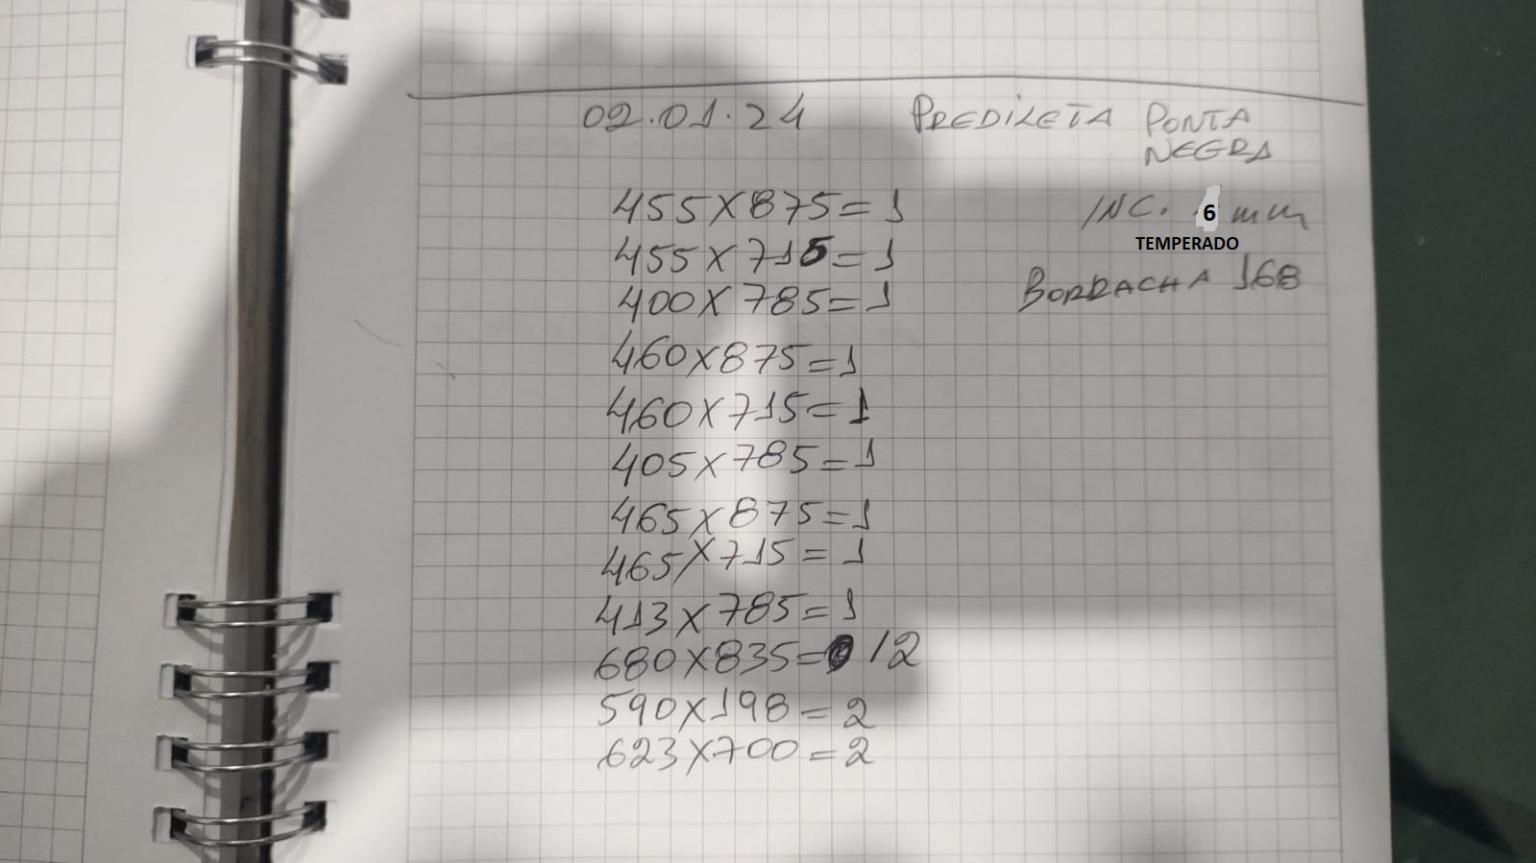 02.01.24 PREDILETA PONTA
NEGRA
455X875=1
INC. 6 mm
TEMPERADO
455X715=1
BORRACHA 168
400X785=1
460X875=1
460X715=1
405X785=1
465X875=1
465X715=1
413X785=1
680X835= 12
590X198=2
623X700=2